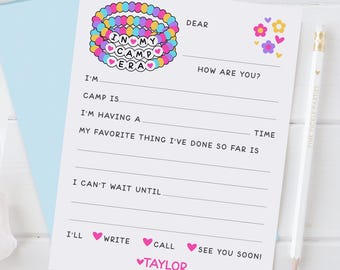 DEAR
IN MY
CAMP
ERA
HOW ARE YOU?
I'M
CAMP IS
I'M HAVING A TIME
MY FAVORITE THING I'VE DONE SO FAR IS
I CAN'T WAIT UNTIL
I'LL WRITE CALL SEE YOU SOON!
TAYLOR